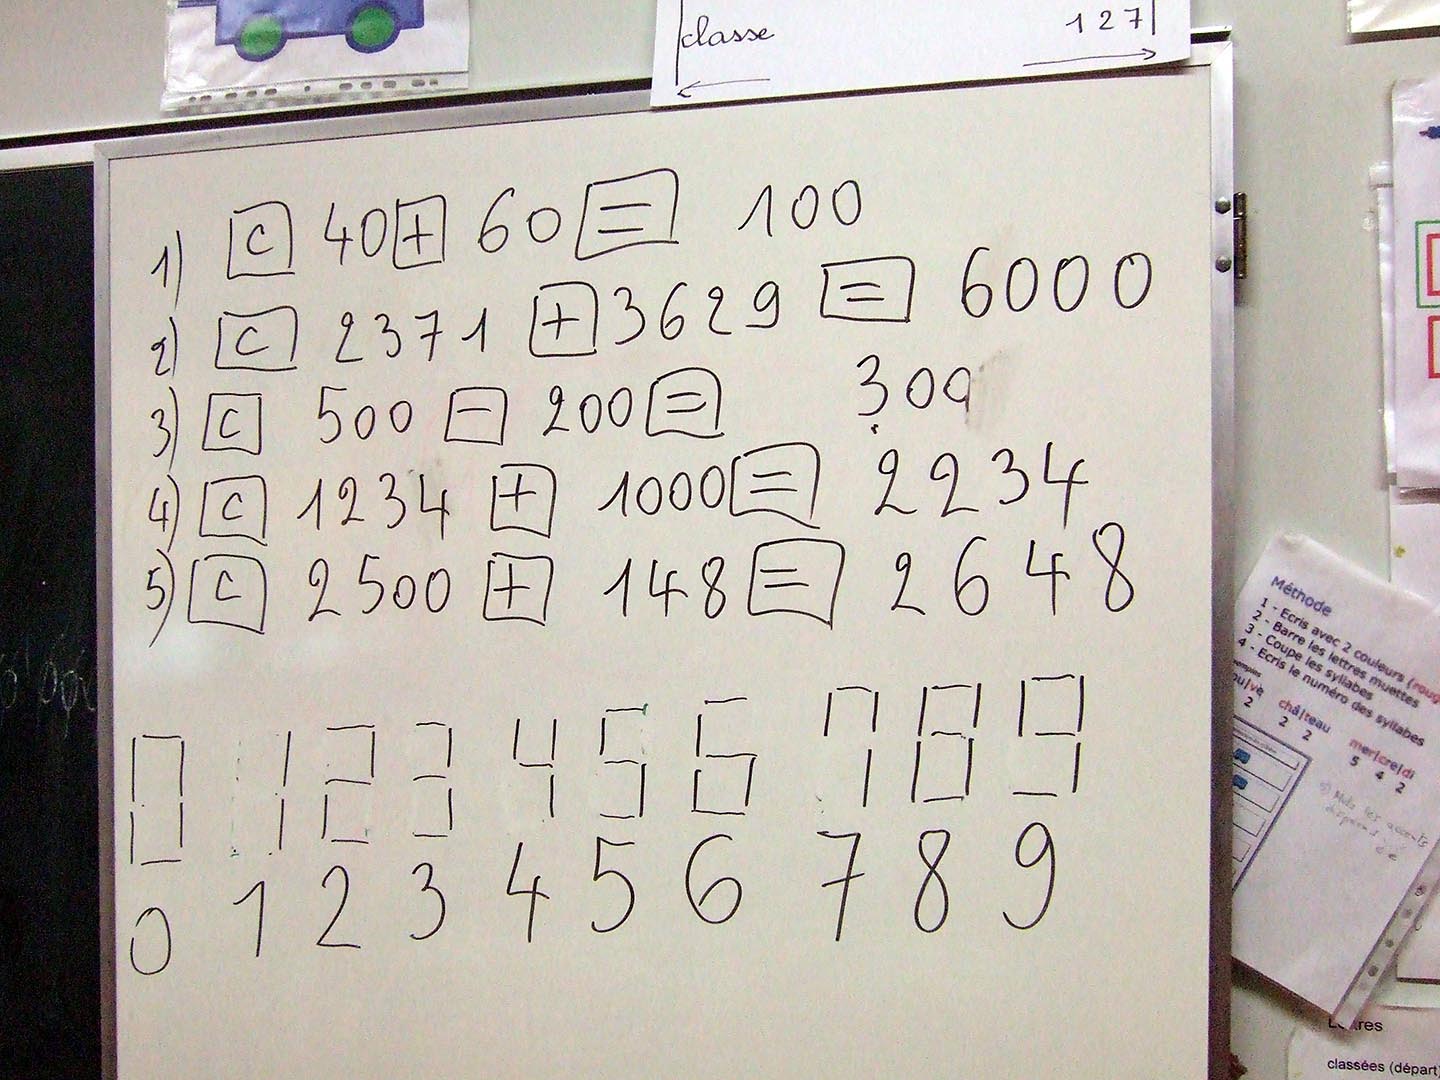 classe 127
1) C 40 + 60 = 100
2) C 2371 + 3629 = 6000
3) C 500 - 200 = 300
4) C 1234 + 1000 = 2234
5) C 2500 + 148 = 2648
0 1 2 3 4 5 6 7 8 9
0 1 2 3 4 5 6 7 8 9
Méthode
1 - Ecris avec 2 couleurs (roug
2 - Barre les lettres muettes
3 - Coupe les syllabes
4 - Ecris le numéro des syllabes
châ/teau
2 2
mer/cre/di
5 4 2
classées (départ)